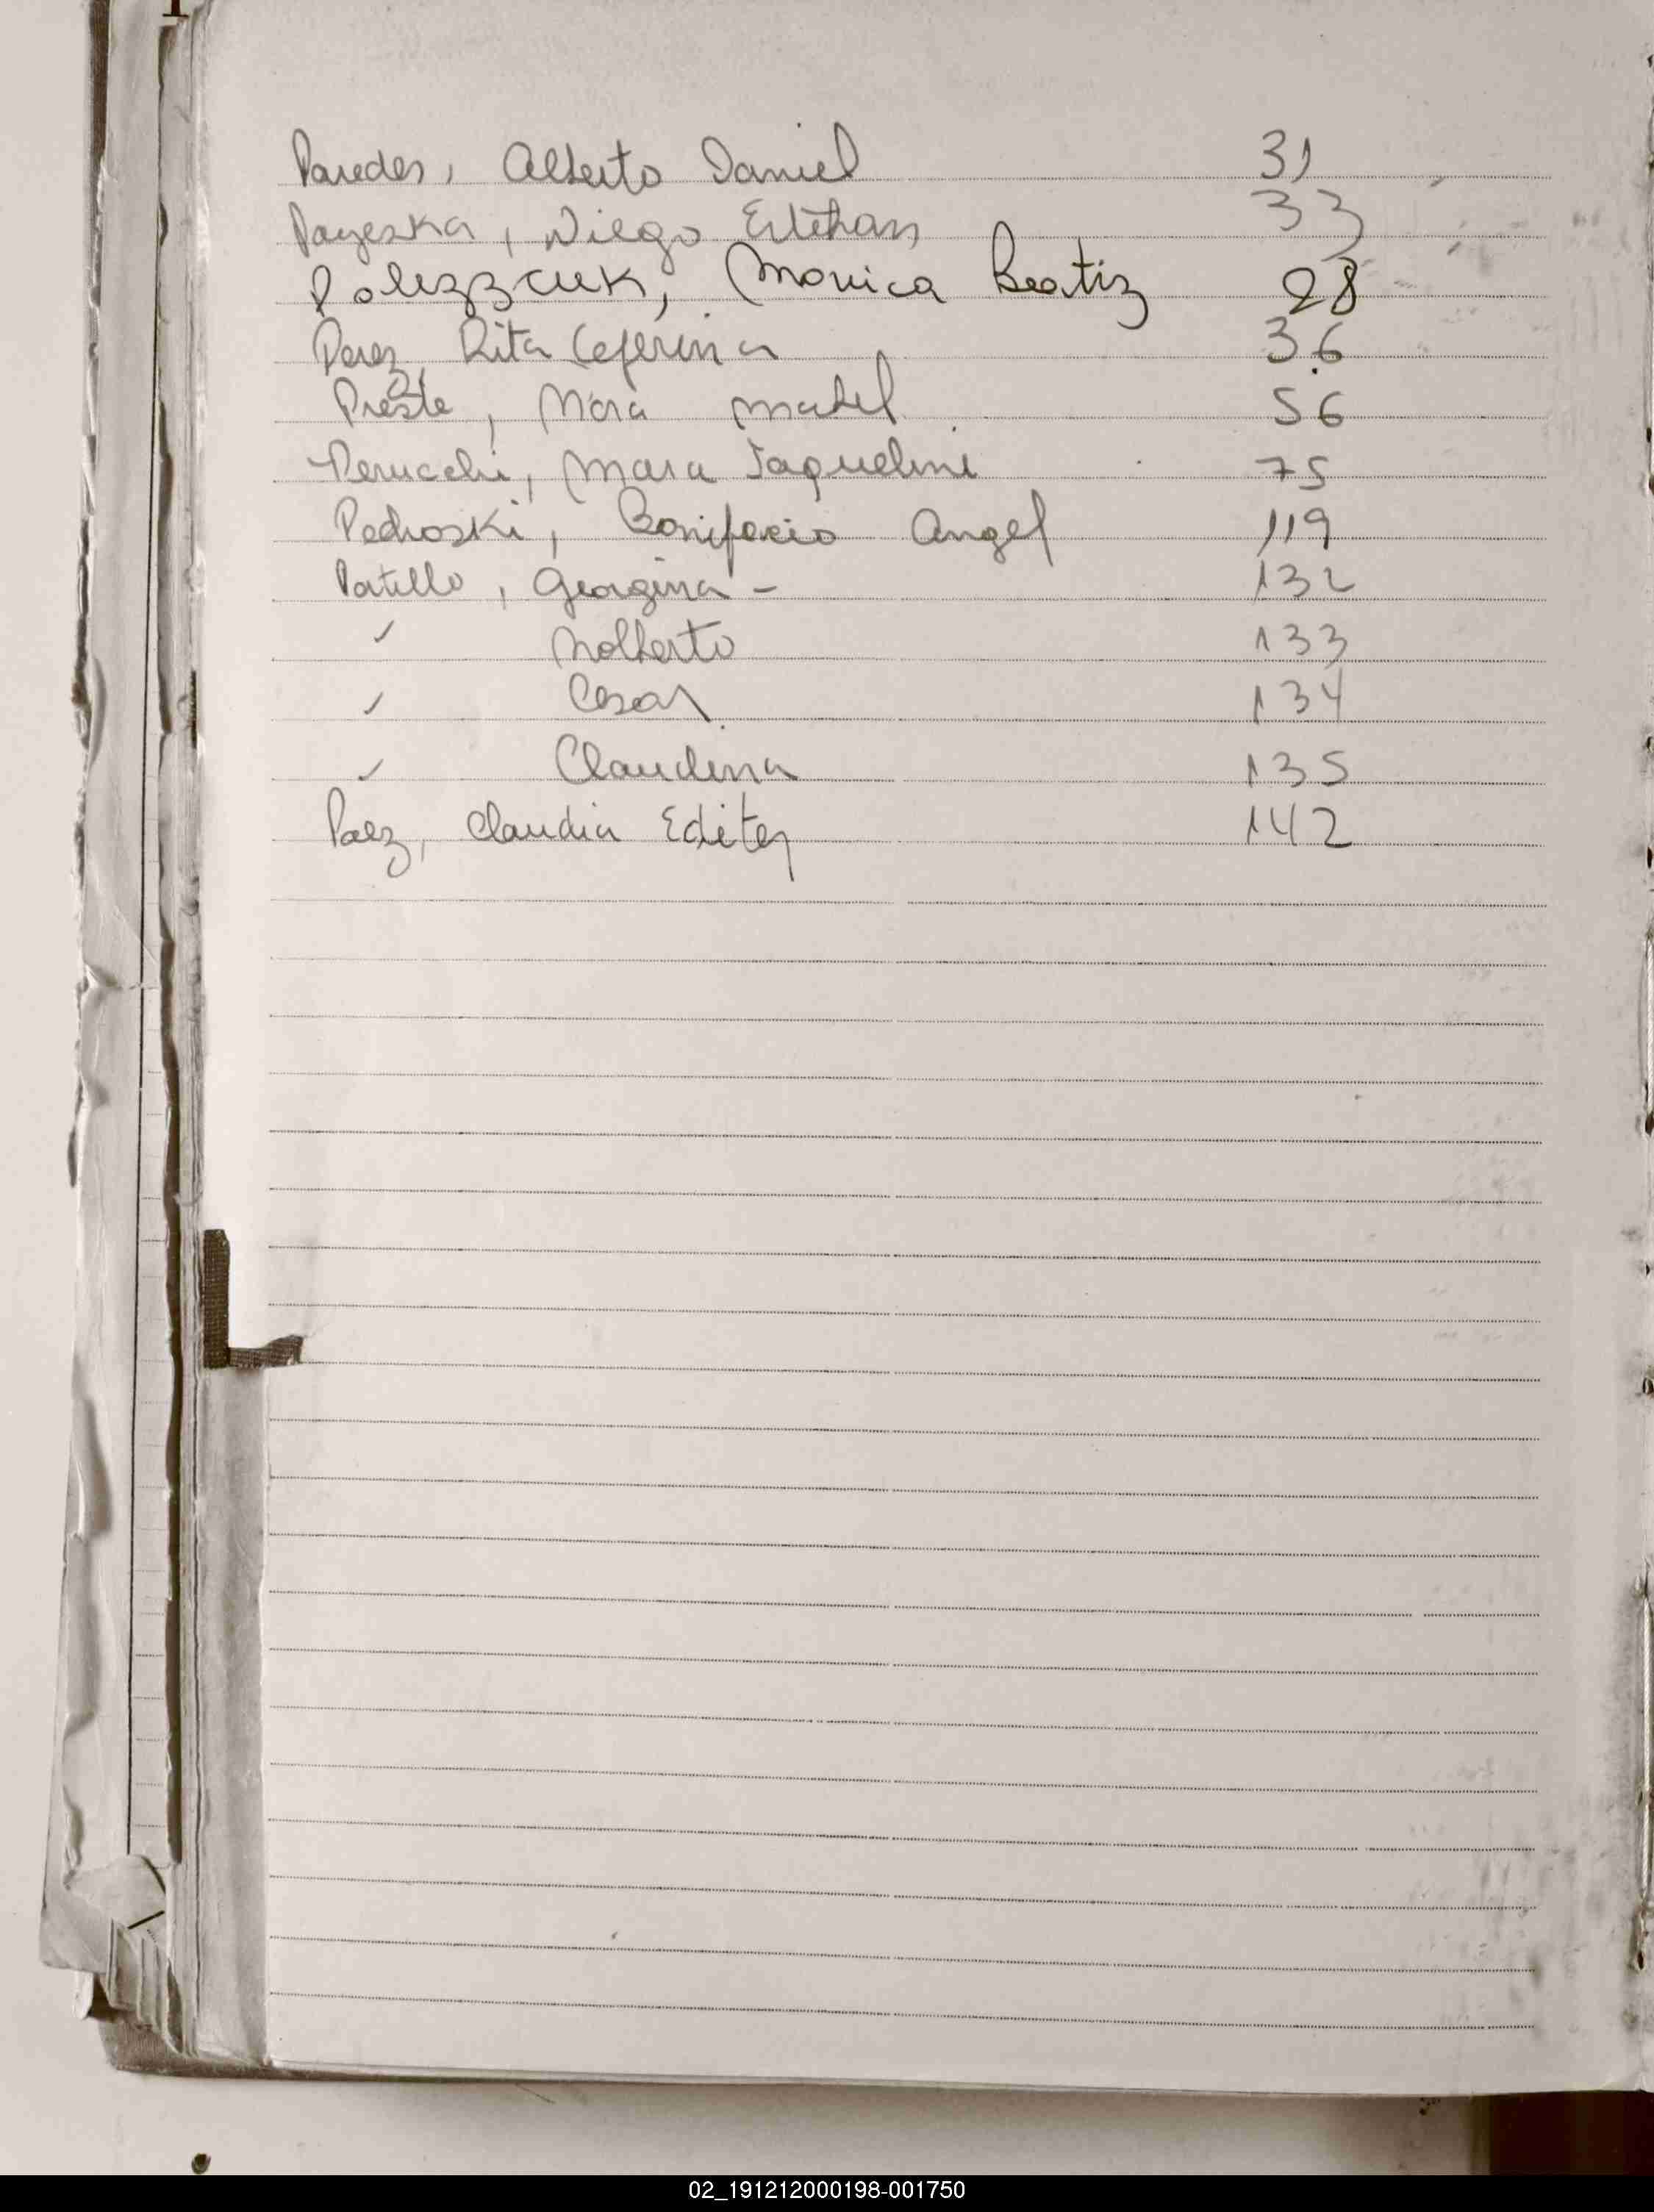 Paredes, Alberto Daniel 31
Payeska, Diego Esteban 33
Polezzcuk, Monica Beatiz 28
Perez, Rita Ceferina 36
Preste, Nora Mabel 56
Perucchi, Mara Jaquelini 75
Pedroski, Bonifacio Angel 119
Patillo, Georgina - 132
Nolberto 133
Cesar 134
Claudina 135
Paez, Claudia Edite 142
02_191212000198-001750